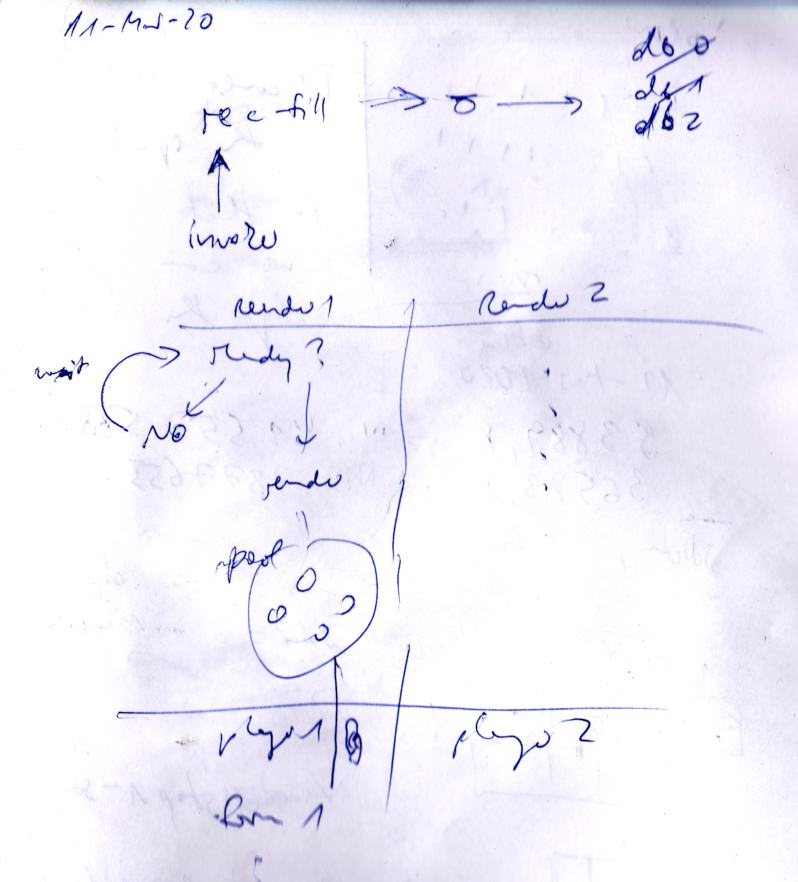 11-Mar-20
rec-fill
db 0
db 1
db 2
invoke
render 1
Render 2
ready?
wait
NO
render
pool
player 1
player 2